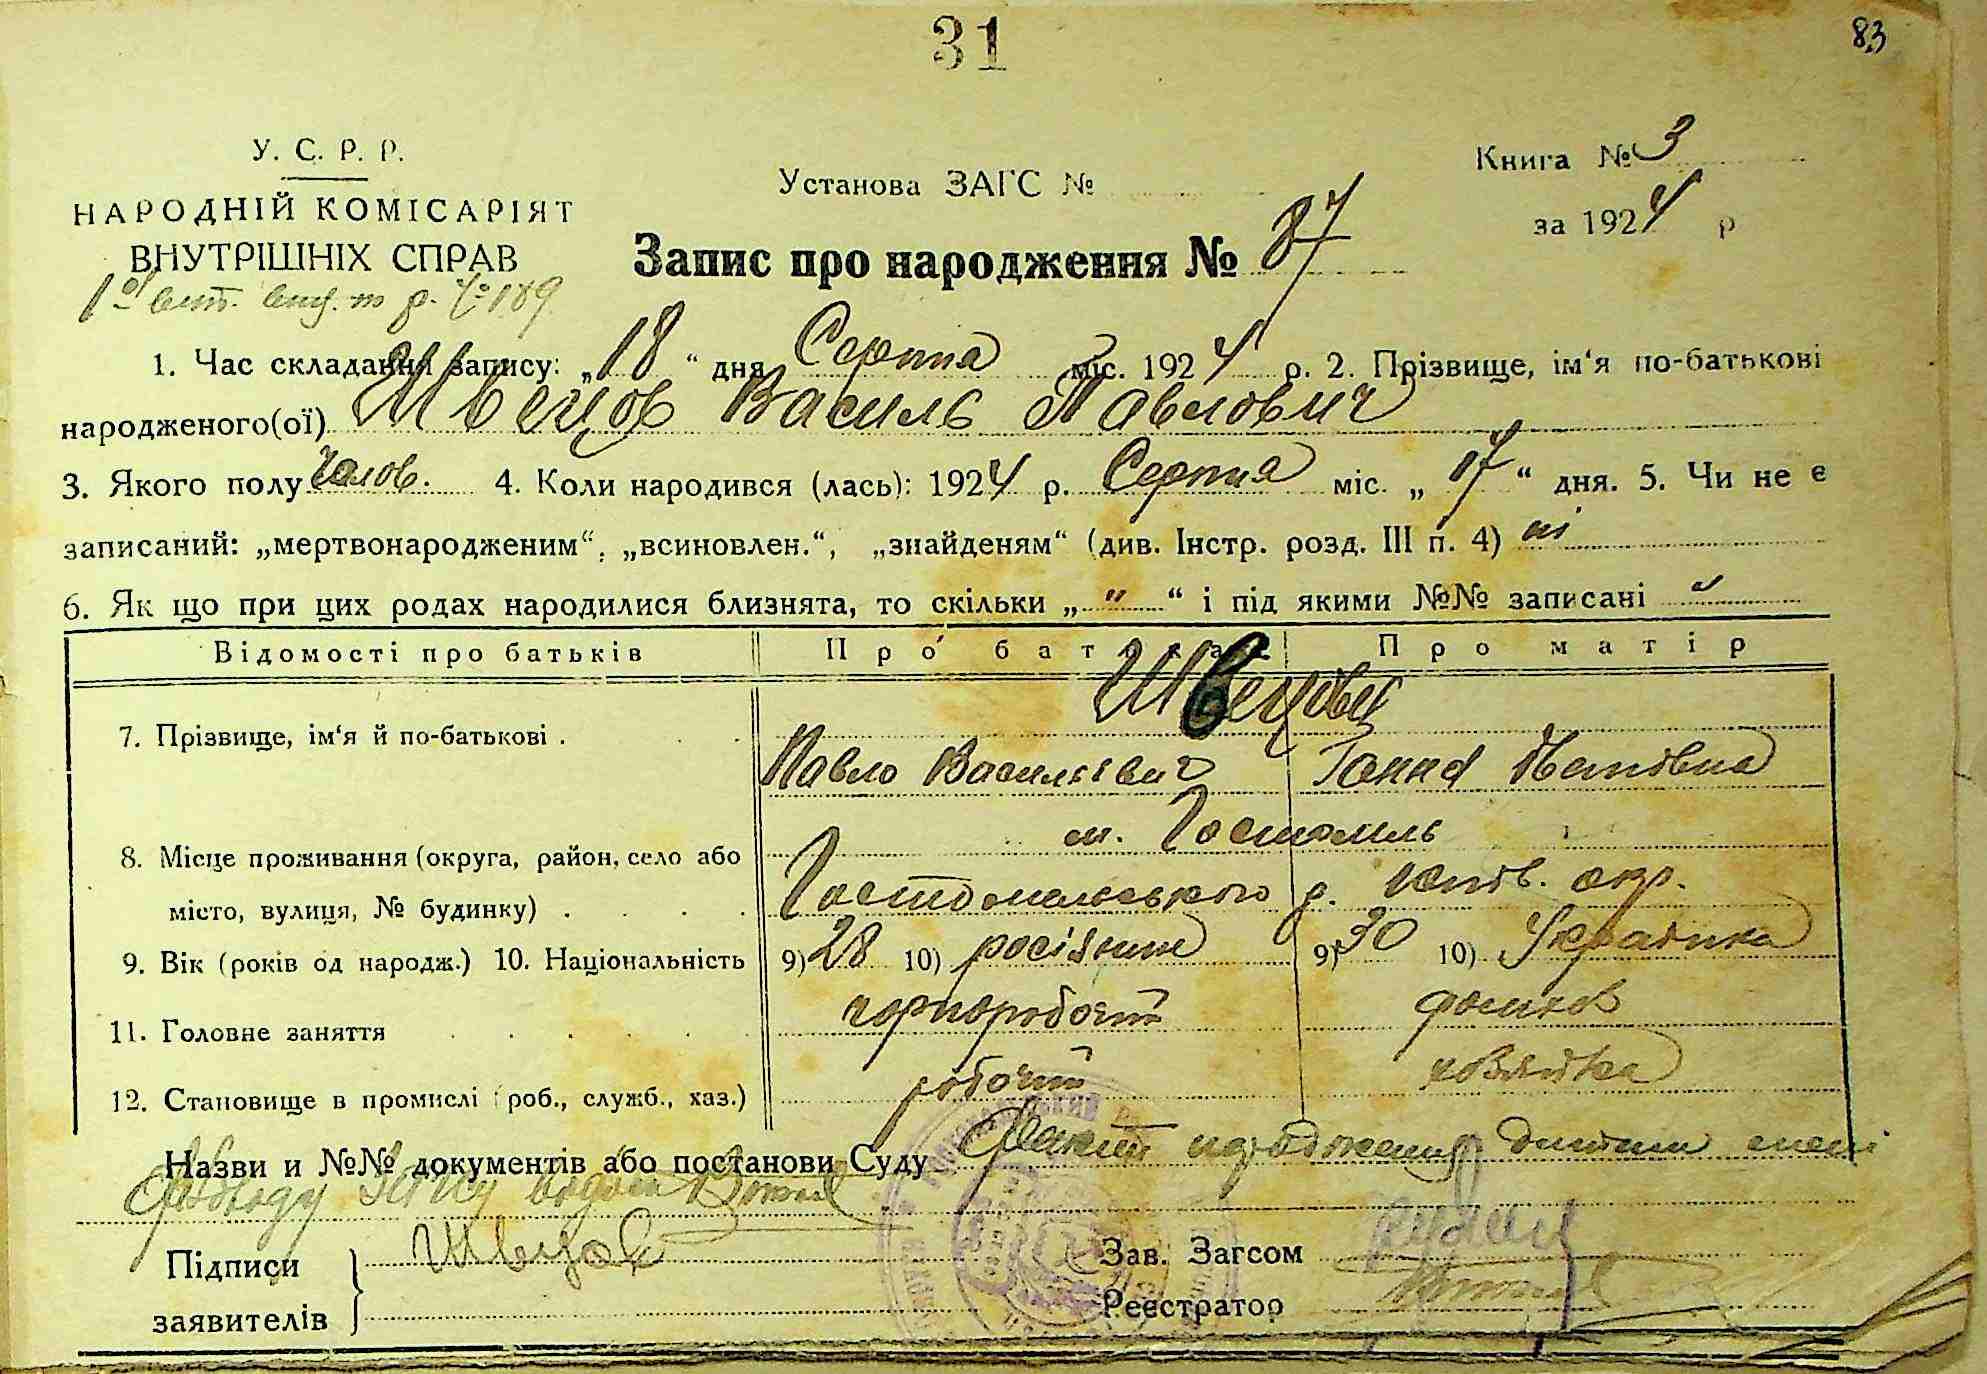 31
83
У. С. Р. Р.
НАРОДНІЙ КОМІСАРІЯТ
ВНУТРІШНІХ СПРАВ
Установа ЗАГС №
Книга № 3
за 1924 р
Запис про народження № 87
1. Час складання запису: „18“ дня Серпня міс. 1924 р. 2. Прізвище, ім‘я по-батькові
народженого(ої) Швецов Василь Павлович
3. Якого полу Чолов. 4. Коли народився (лась): 1924 р. Серпня міс. „17“ дня. 5. Чи не є
записаний: „мертвонародженим“, „всиновлен.“, „знайденям“ (див. Інстр. розд. III п. 4) ні
6. Як що при цих родах народилися близнята, то скільки „ " “ і під якими №№ записані "
Відомості про батьків Про батька Про матір
Швецови
7. Прізвище, ім‘я й по-батькові . Павло Васильевич Ганна Петрівна
м. Гостомиль
8. Місце проживання (округа, район, село або
місто, вулиця, № будинку) . Гостомельського р. Київ. окр.
9. Вік (років од народж.) 10. Національність 9) 28 10) росіянин 9) 30 10) Українка
11. Головне заняття чорноробочий домов
хозяйка
12. Становище в промислі (роб., служб., хаз.) робочий
Назви и №№ документів або постанови Суду Факт народження дитини
Підписи
заявителів
Швецов
Зав. Загсом
Реєстратор